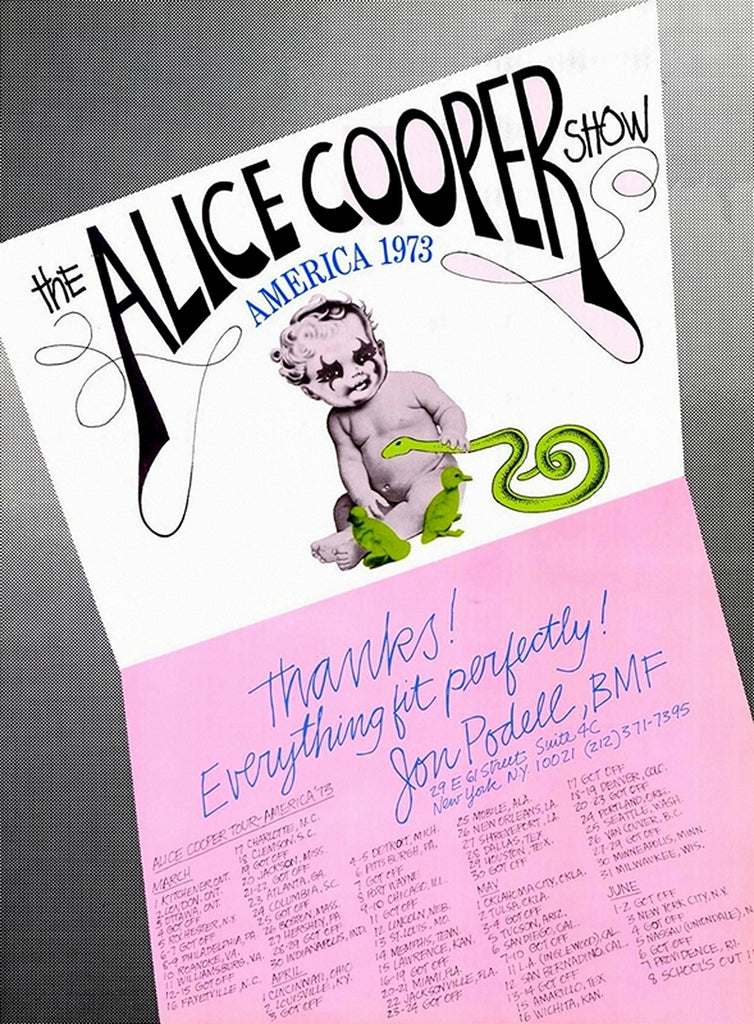 the ALICE COOPER SHOW
AMERICA 1973
Thanks!
Everything fit perfectly!
Jon Podell, BMF
29 E 61 Street Suite 4C
New York N.Y. 10021 (212) 371-7395
ALICE COOPER TOUR-AMERICA '73
MARCH
1 KITCHENER ONT.
2 LONDON, ONT.
3 OTTAWA, ONT.
5 ROCHESTER, N.Y.
6-7 GOT OFF
8-9 PHILADELPHIA, PA
10 ROANOKE, VA.
11 WILLIAMSBURG, VA.
12-15 GOT OFF
16 FAYETVILLE, N.C.
17 CHARLOTTE, N.C.
18 CLEMSON, S.C.
19 GOT OFF
20 JACKSON, MISS.
21-22 GOT OFF
23 ATLANTA, GA.
24 COLUMBIA, S.C.
25 GOT OFF
26 BOSTON, MASS.
27 HERSHEY, PA
28-29 GOT OFF
30 INDIANAPOLIS, IND.
APRIL
1 CINCINNATI, OHIO
2 LOUISVILLE, KY.
3 GOT OFF
4-5 DETROIT, MICH.
6 PITTSBURGH, PA.
7 GOT OFF
8 FORT WAYNE
9-10 CHICAGO, ILL.
11 GOT OFF
12 LINCOLN, NEB.
13 ST. LOUIS, MO.
14 MEMPHIS, TENN.
15 LAWRENCE, KAN.
16-19 GOT OFF
20-21 MIAMI, FLA.
22 JACKSONVILLE, FLA.
23-24 GOT OFF
25 MOBILE, ALA.
26 NEW ORLEANS, LA.
27 SHREVEPORT, LA.
28 DALLAS, TEX
29 HOUSTON, TEX.
30 GOT OFF
MAY
1 OKLAHOMA CITY, OKLA.
2 TULSA, OKLA.
3-4 GOT OFF
5 TUCSON, ARIZ.
6 SAN DIEGO, CAL.
7-10 GOT OFF
11 L.A. (INGLEWOOD), CAL.
12 SAN BERNADINO, CAL.
13-14 GOT OFF
15 AMARILLO, TEX
16 WICHITA, KAN.
17 GOT OFF
18-19 DENVER, COLO.
20-23 GOT OFF
24 PORTLAND, ORE.
25 SEATTLE, WASH.
26 VANCOUVER, B.C.
27-29 GOT OFF
30 MINNEAPOLIS, MINN.
31 MILWAUKEE, WIS.
JUNE
1-2 GOT OFF
3 NEW YORK CITY, N.Y.
4 GOT OFF
5 NASSAU (UNIONDALE), N.
6 GOT OFF
7 PROVIDENCE, R.I.
8 SCHOOL'S OUT!!